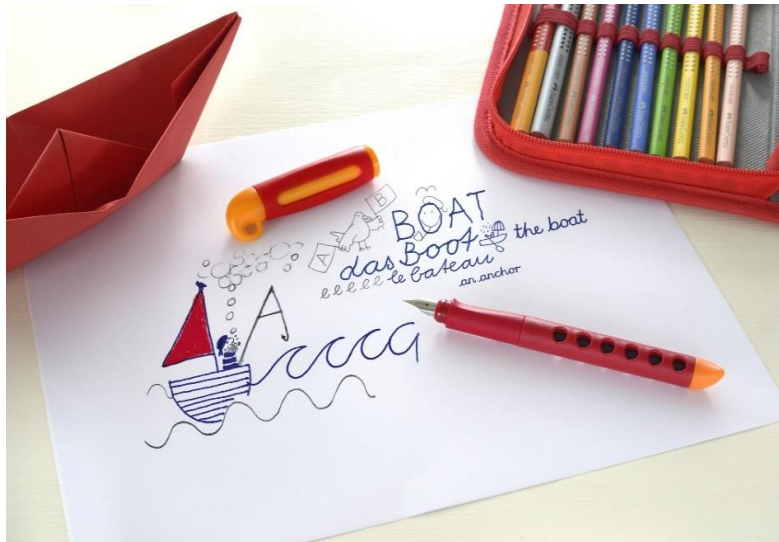 A B
BOAT
das Boot the boat
eeeee le bateau
an anchor
A